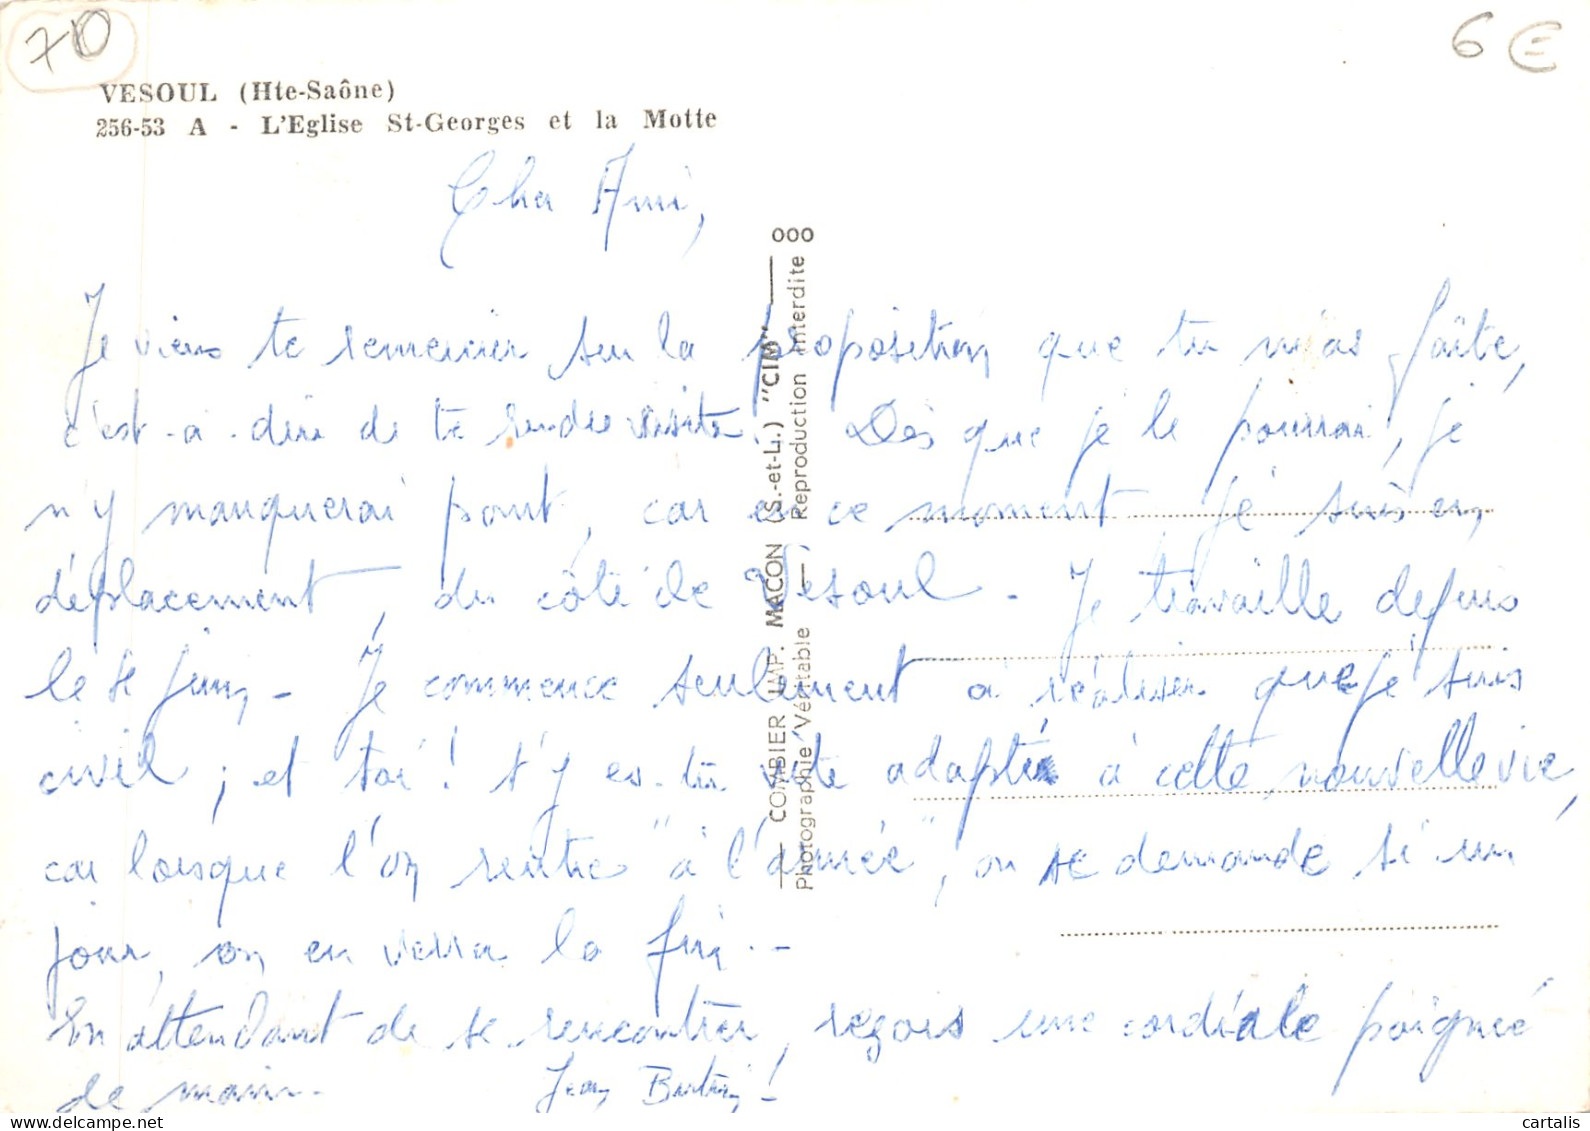 70
6 €
VESOUL (Hte-Saône)
256-53 A - L'Eglise St-Georges et la Motte
Cher Ami,
Je viens te remercier sur la proposition que tu m'as faîte,
c'est-à-dire de te rendre visite. Dès que je le pourrai, je
n'y manquerai point, car en ce moment je suis en
déplacement, du côté de Vesoul. Je travaille depuis
le juin. Je commence seulement à réaliser que je suis
civil ; et toi ! t'y es-tu vite adapté à cette nouvelle vie,
car lorsque l'on rentre "à l'armée", on se demande si un
jour, on en verra la fin..
En attendant de se rencontrer, reçois une cordiale poignée
de main.
Jean !
COMBIER IMP. MACON (S.-et-L.) "CIM"
Photographie Véritable — Reproduction Interdite
000
cartalis